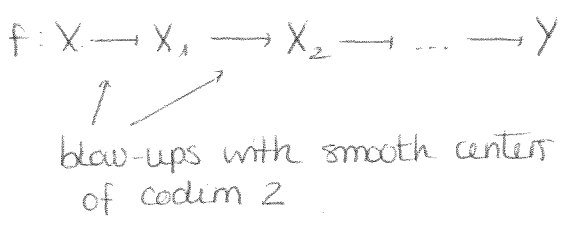 f: X → X₁ → X₂ → ... → Y
blow-ups with smooth centers
of codim 2